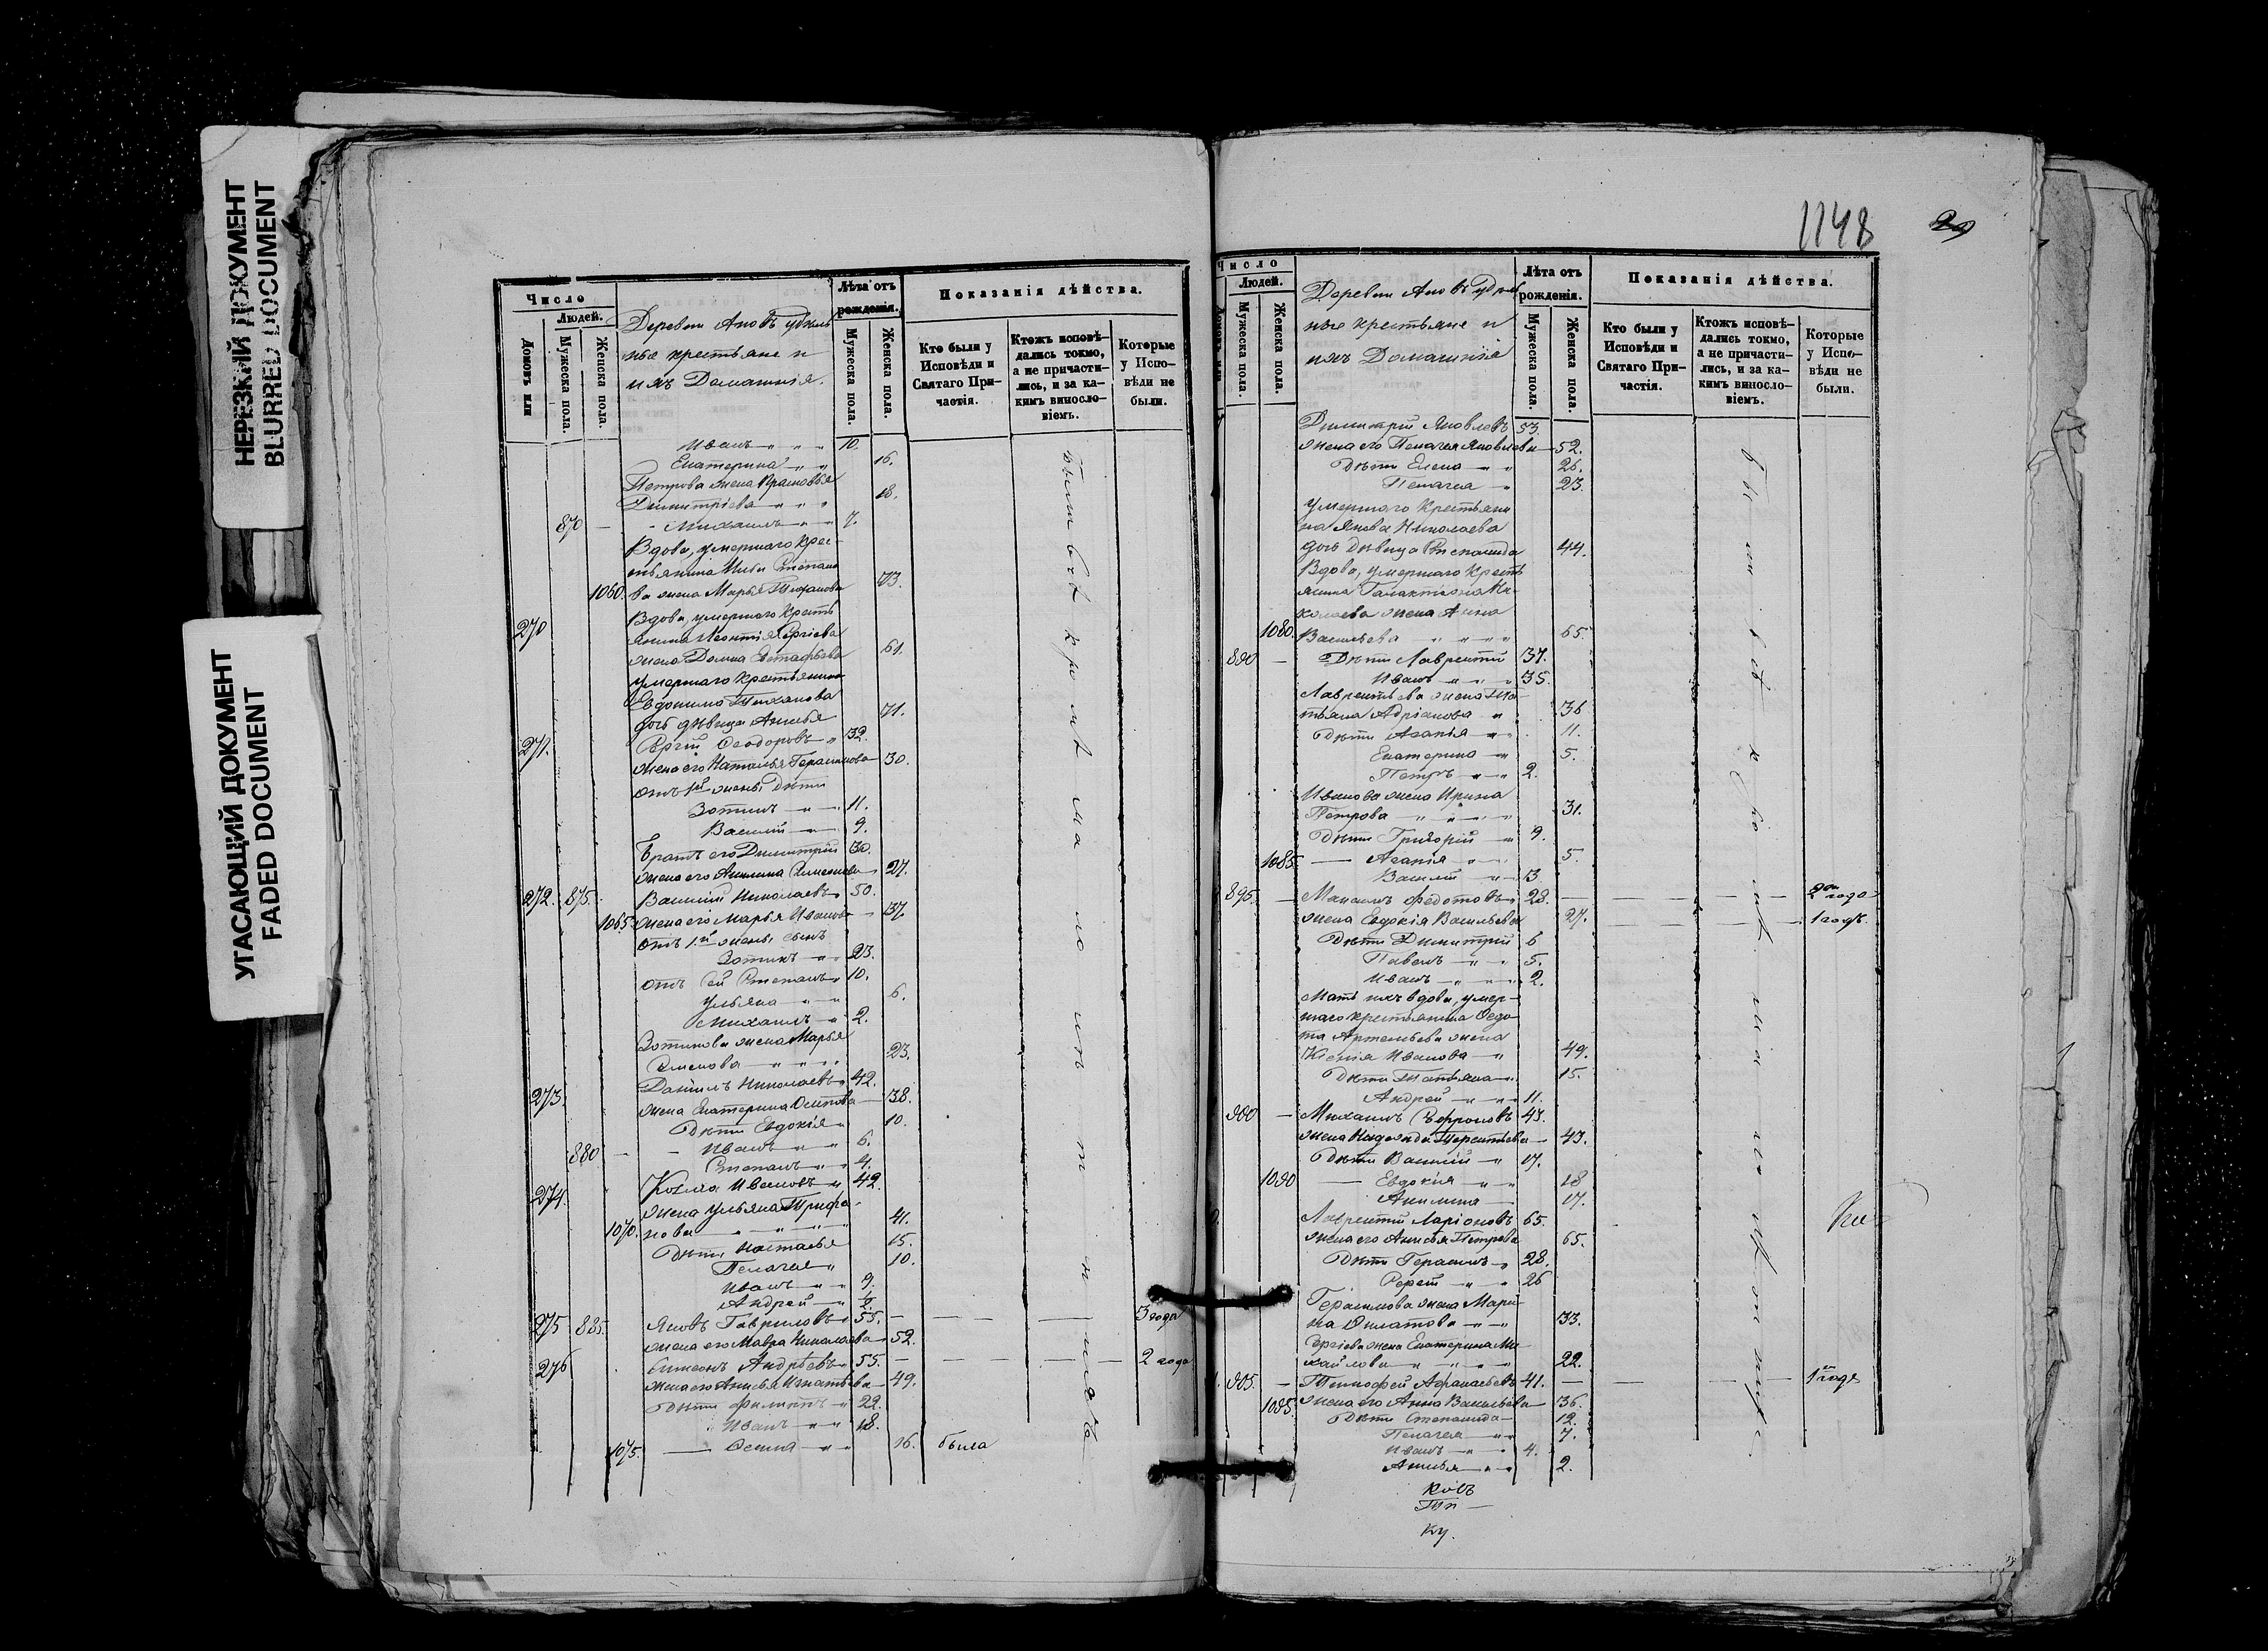 НЕРЕЗКИЙ ДОКУМЕНТ
BLURRED DOCUMENT
УГАСАЮЩИЙ ДОКУМЕНТ
FADED DOCUMENT
Число
Людей.
Домовъ или
Мужеска пола.
Женска пола.
Деревни
крестьяне и
ихъ Домашнія.
Лѣта отъ
рожденія.
Мужеска пола.
Женска пола.
Показанія дѣйства.
Кто были у
Исповѣди и
Святаго При-
частія.
Ктожъ исповѣ-
дались токмо,
а не причасти-
лись, и за ка-
кимъ виносло-
віемъ.
Которые
у Испо-
вѣди не
были.
Иванъ 10.
Екатерина 16.
Петрова жена
Димитріева 18.
870 — Михаилъ 7.
Вдова, умершаго Крес-
тьянина Степано
1060. ва жена Марья 73.
270 Вдова, умершаго Кресть
янина Леонтія Сергіева
жена Домна Евстафьева 61.
умершаго Крестьянина
Евдокима
дочь дѣвица Анисья 71.
271. Сергій Ѳеодоровъ 32.
жена его Наталья Герасимова 30.
отъ 1й жены Дѣти
Зотикъ 11.
Василій 9.
Братъ его Димитрій 30.
жена его Акилина Симеонова 27.
272. 875. Василій Николаевъ 50.
1065. жена его Марья Иванова 37.
отъ 1й жены сынъ
Зотикъ 23.
отъ сей Степанъ 10.
Ульяна 6.
Михаилъ 2.
Зотикова жена Марья
Семенова 23.
273. Даніилъ Николаевъ 42.
жена Екатерина Осипова 38.
Дѣти Евдокія 10.
880 — Иванъ 6.
Степанъ 4.
274. Козма Ивановъ 42.
жена Ульяна Трифо-
1070. нова 41.
Дѣти Настасья 15.
Пелагея 10.
Иванъ 9.
Андрей
275 885. Яковъ Гавриловъ 55. 3 года
жена его Мавра Николаева 52.
276 Симеонъ Андрѣевъ 55. 2 года
жена его Анисья Игнатьева 49.
Дѣти Филиппъ 22.
Иванъ 18.
1075. — Ѳекла 16. была
Были всѣ кромѣ малолѣтн
1148
29
Число
Людей.
Домовъ или
Мужеска пола.
Женска пола.
Деревни
ные крестьяне и
ихъ Домашнія
Лѣта отъ
рожденія.
Мужеска пола.
Женска пола.
Показанія дѣйства.
Кто были у
Исповѣди и
Святаго При-
частія.
Ктожъ исповѣ-
дались токмо,
а не причасти-
лись, и за ка-
кимъ виносло-
віемъ.
Которые
у Испо-
вѣди не
были.
Димитрій Яковлевъ 53.
жена его Пелагея Яковлева 52.
Дѣти Елена 26.
Пелагея 23.
умершаго Крестьяни
на Якова Николаева
дочь дѣвица Степанида 44.
Вдова, умершаго Кресть
янина Галактіона Ни-
колаева жена Анна
1080. Васильева 65.
890 — Дѣти Лаврентій 37.
Иванъ 35.
Лаврентьева жена Та-
тьяна Адріанова 36
Дѣти Агапія 11.
Екатерина 5.
Петръ 2.
Иванова жена Ирина
Петрова 31.
Дѣти Григорій 9.
1085. — Агапія 5.
Василій 3
895. — Федотовъ 28. 2 года
жена Евдокія Васильева 27. 1 годъ.
Дѣти Димитрій 6
Павелъ 5.
Иванъ 2.
Мать ихъ вдова, умер-
шаго крестьянина Ѳедо
та Артемьева жена
Ксенія Иванова 49.
Дѣти Татьяна 15.
Андрей 11.
900 — Михаилъ Софроновъ 43.
жена Надежда Терентьева 43.
Дѣти Василій 17.
1090 — Евдокія 18
Акилина 17.
Лаврентій Ларіоновъ 65.
жена его Анисья Петрова 65.
Дѣти Герасимъ 28.
Сергій 26
Герасимова жена Мари-
на Филатова 33.
Сергіева жена Екатерина Ми-
хайлова 22.
905. — Тимофей Афанасьевъ 41. 1 годъ
1095. жена его Анна Васильева 36.
Дѣти Степанида 12.
Пелагея 7.
Иванъ 4.
Анисья 2.
Были всѣ кромѣ